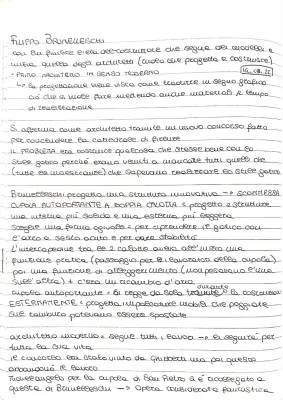 FILIPPO BRUNELLESCHI
con lui finisce l'era del costruttore che segue dei modelli e
inizia quella degli architetti (colui che progetta e costruisce)
• PRIMO ARCHITETTO IN SENSO MODERNO
↳ la progettazione viene vista come tradurre in segno grafico
ciò che si vuole fare mettendo anche materiali e tempo
di realizzazione
Si afferma come architetto tramite un nuovo concorso fatto
per concludere la cattedrale di Firenze
IL PROBLEMA era costruire qualcosa che stesse bene con lo
stile gotico perché erano venuti a mancare tutti quelli che
(tutte le maestranze) che sapevano realizzare lo stile gotico
Brunelleschi progetta una struttura innovativa → SCOMMESSA
CUPOLA AUTOPORTANTE A DOPPIA CALOTTA = progetta 2 strutture
una interna più solida e una esterna più leggera
sceglie una forma ogivale = per riprendere il gotico con
l'arco a sesto acuto e per dare stabilità
L'intercapedine tra le 2 calotte aveva all'inizio una
funzione pratica (passaggio per i lavoratori della cupola)
poi una funzione di alleggerimento (non pesavano l'una
sull'altra) + c'era un ricambio d'aria
cupola autoportante = si regge da sola durante la costruzione
ESTERNAMENTE = progetta impalcature mobili che poggiate
sul tamburo potevano essere spostate
architetto moderno = segue tutti i lavori → la seguirà per
tutta la sua vita
il concorso era stato vinto da Ghiberti ma poi questo
abbandonò il lavoro
Michelangelo per la cupola di San Pietro si è assoggettato a
questa di Brunelleschi → Opera considerata fantastica